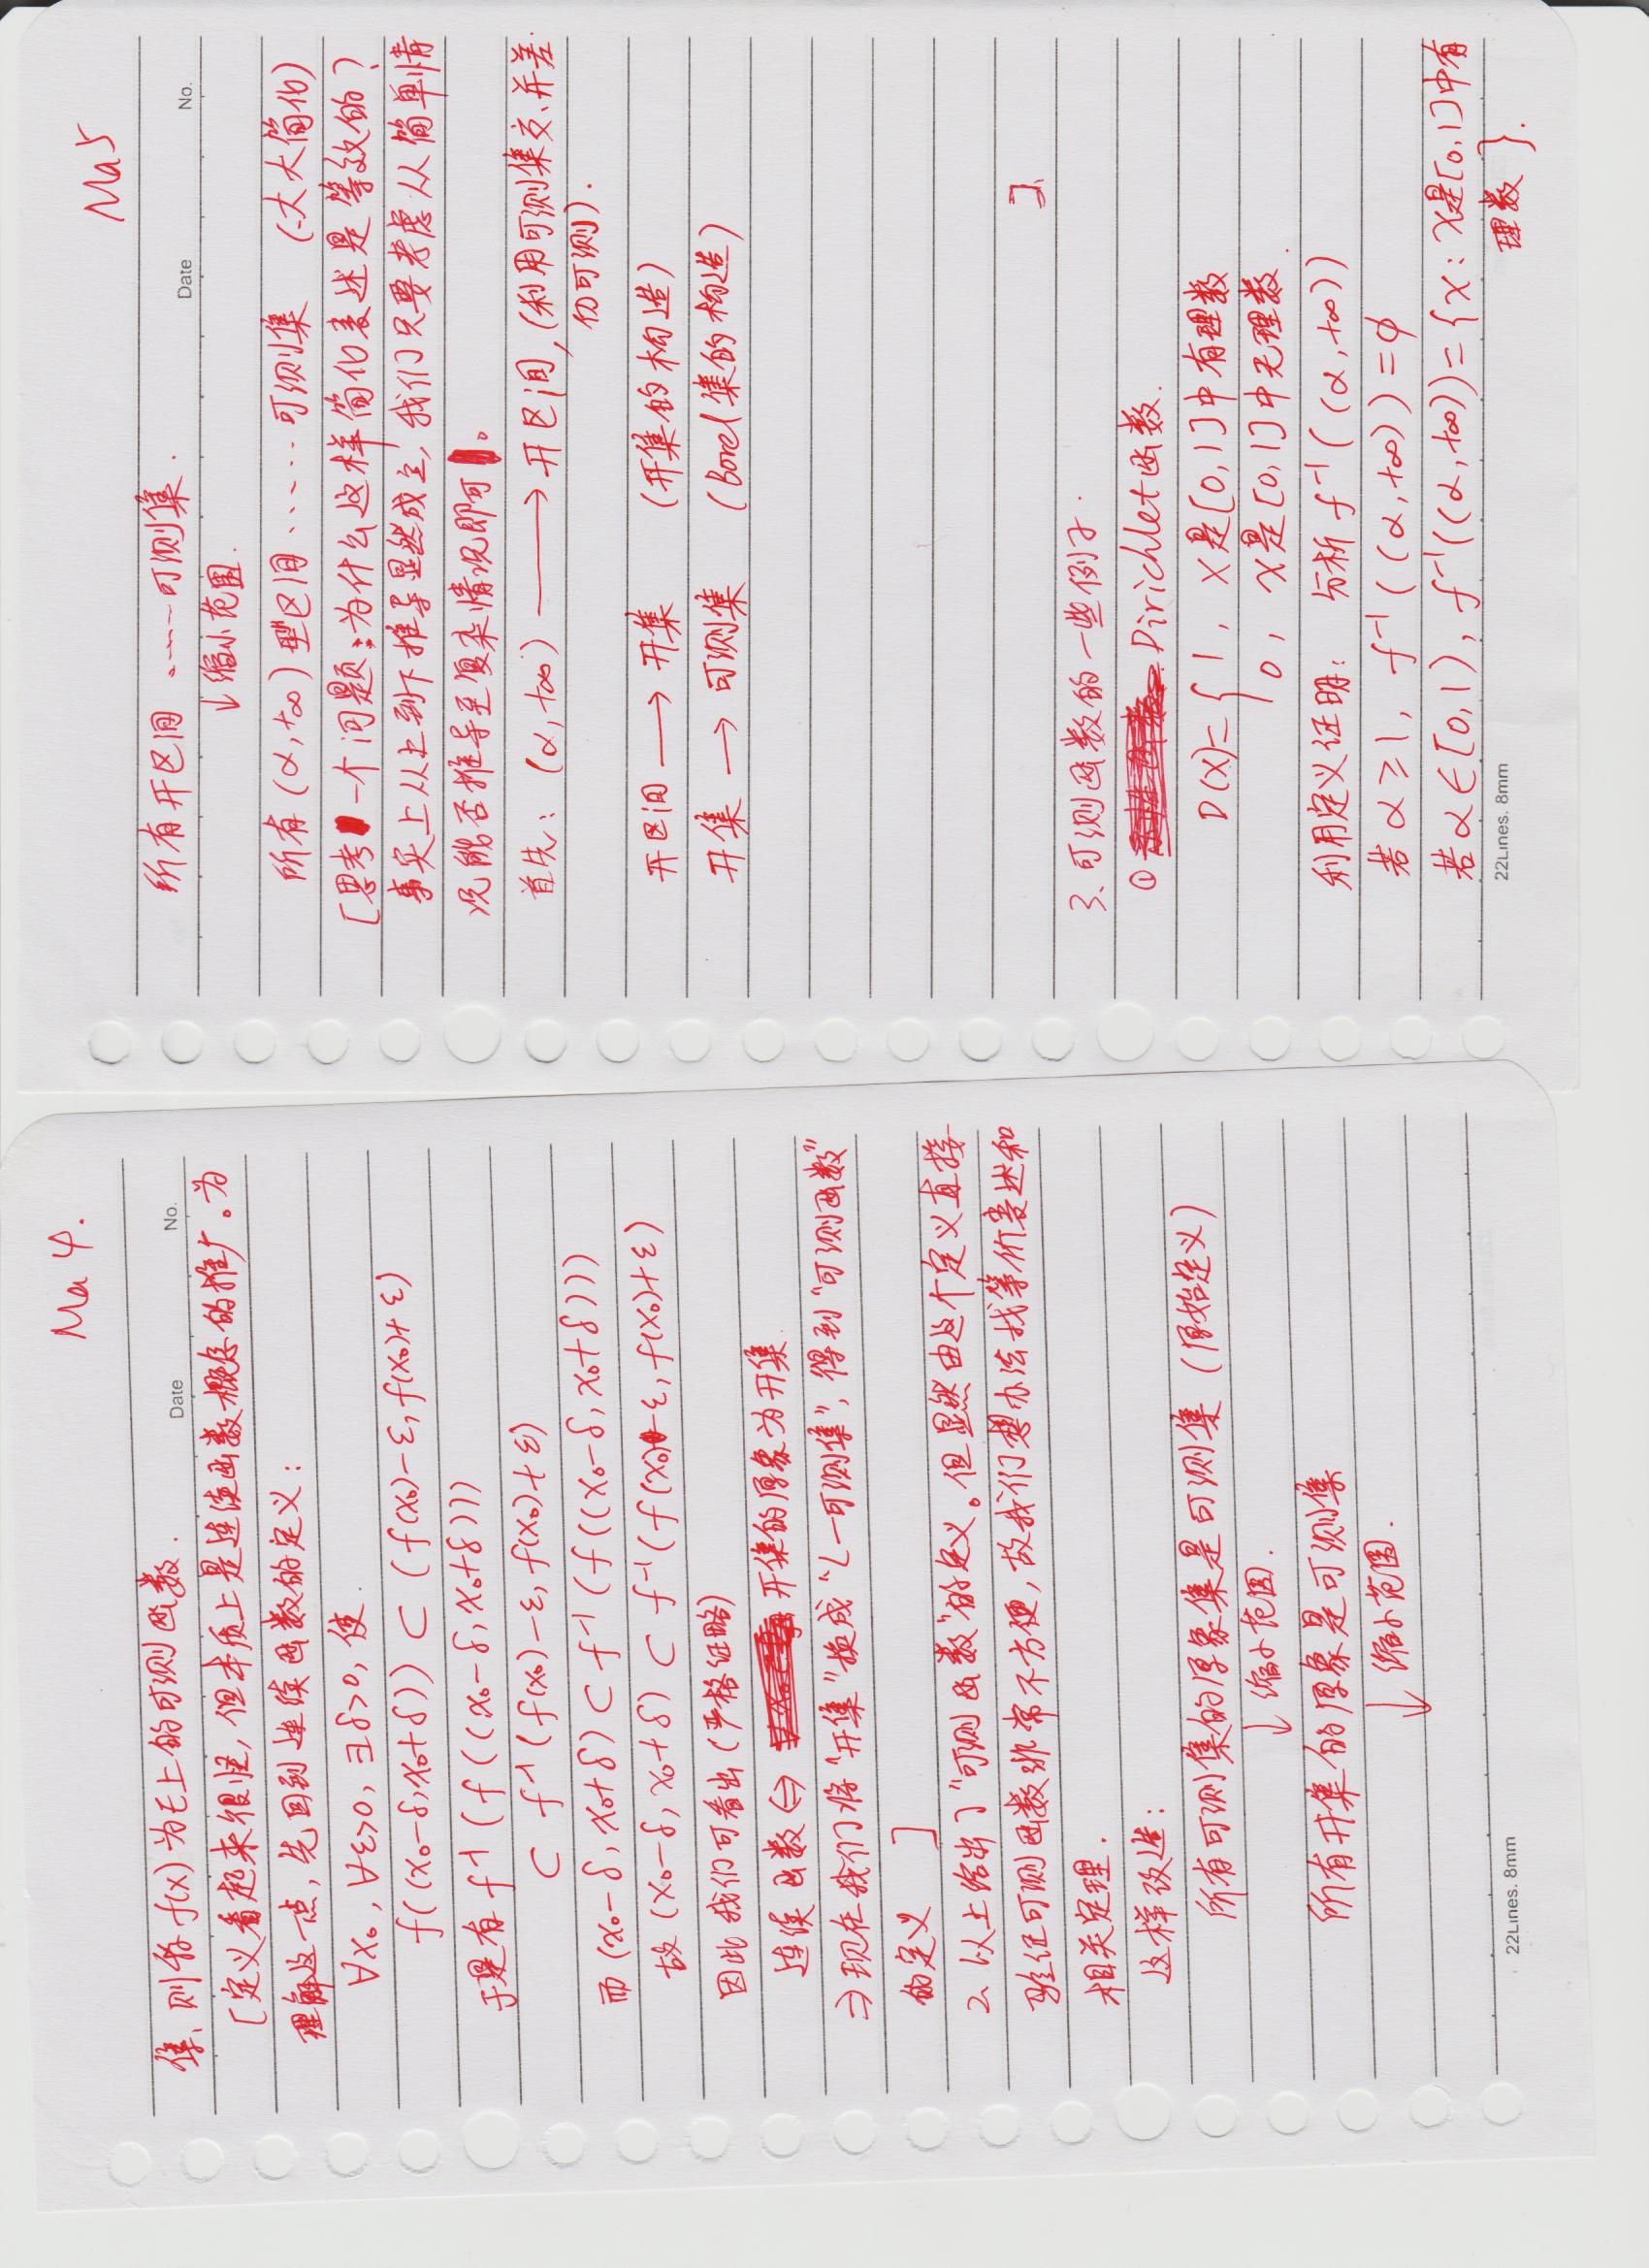 Ma 4.
集,则称f(x)为E上的可测函数.
Date No.
[定义看起来很怪,但本质上是连续函数概念的推广。为
理解这一点,先回到连续函数的定义:
∀x₀, ∀ε>0, ∃δ>0, 使
f((x₀-δ, x₀+δ)) ⊂ (f(x₀)-ε, f(x₀)+ε)
于是有 f⁻¹(f((x₀-δ, x₀+δ)))
⊂ f⁻¹(f(x₀)-ε, f(x₀)+ε)
而(x₀-δ, x₀+δ) ⊂ f⁻¹(f((x₀-δ, x₀+δ)))
故(x₀-δ, x₀+δ) ⊂ f⁻¹(f(x₀)-ε, f(x₀)+ε)
因此我们可看出(严格证略)
连续函数 ⇔ 开集的原象为开集.
⇒现在我们将"开集"换成"L-可测集",得到"可测函数"
的定义 ]
2、以上给出了"可测函数"的定义。但显然由这个定义直接
验证可测函数非常不方便,故我们想办法找等价表述和
相关定理.
这样改造:
所有可测集的原象集是可测集(原始定义)
↓缩小范围.
所有开集的原象是可测集
↓缩小范围.
22Lines. 8mm
Ma5
所有开区间 ……可测集.
Date No.
↓缩小范围.
所有(α,+∞)型区间……可测集 (大大简化)
[思考一个问题:为什么这样简化表述是等效的?
事实上从上到下推导显然成立,我们只要考虑从简单情
况能否推导至复杂情况即可。
首先: (α,+∞) → 开区间,(利用可测集交、并差
仍可测).
开区间 → 开集 (开集的构造)
开集 → 可测集 (Borel集的构造)
].
3、可测函数的一些例子.
① Dirichlet函数.
D(x)= { 1, x是[0,1]中有理数
0, x是[0,1]中无理数.
利用定义证明: 分析 f⁻¹((α,+∞))
若α≥1, f⁻¹((α,+∞))=φ
若α∈[0,1), f⁻¹((α,+∞))={x: x是[0,1]中有
理数}.
22Lines. 8mm